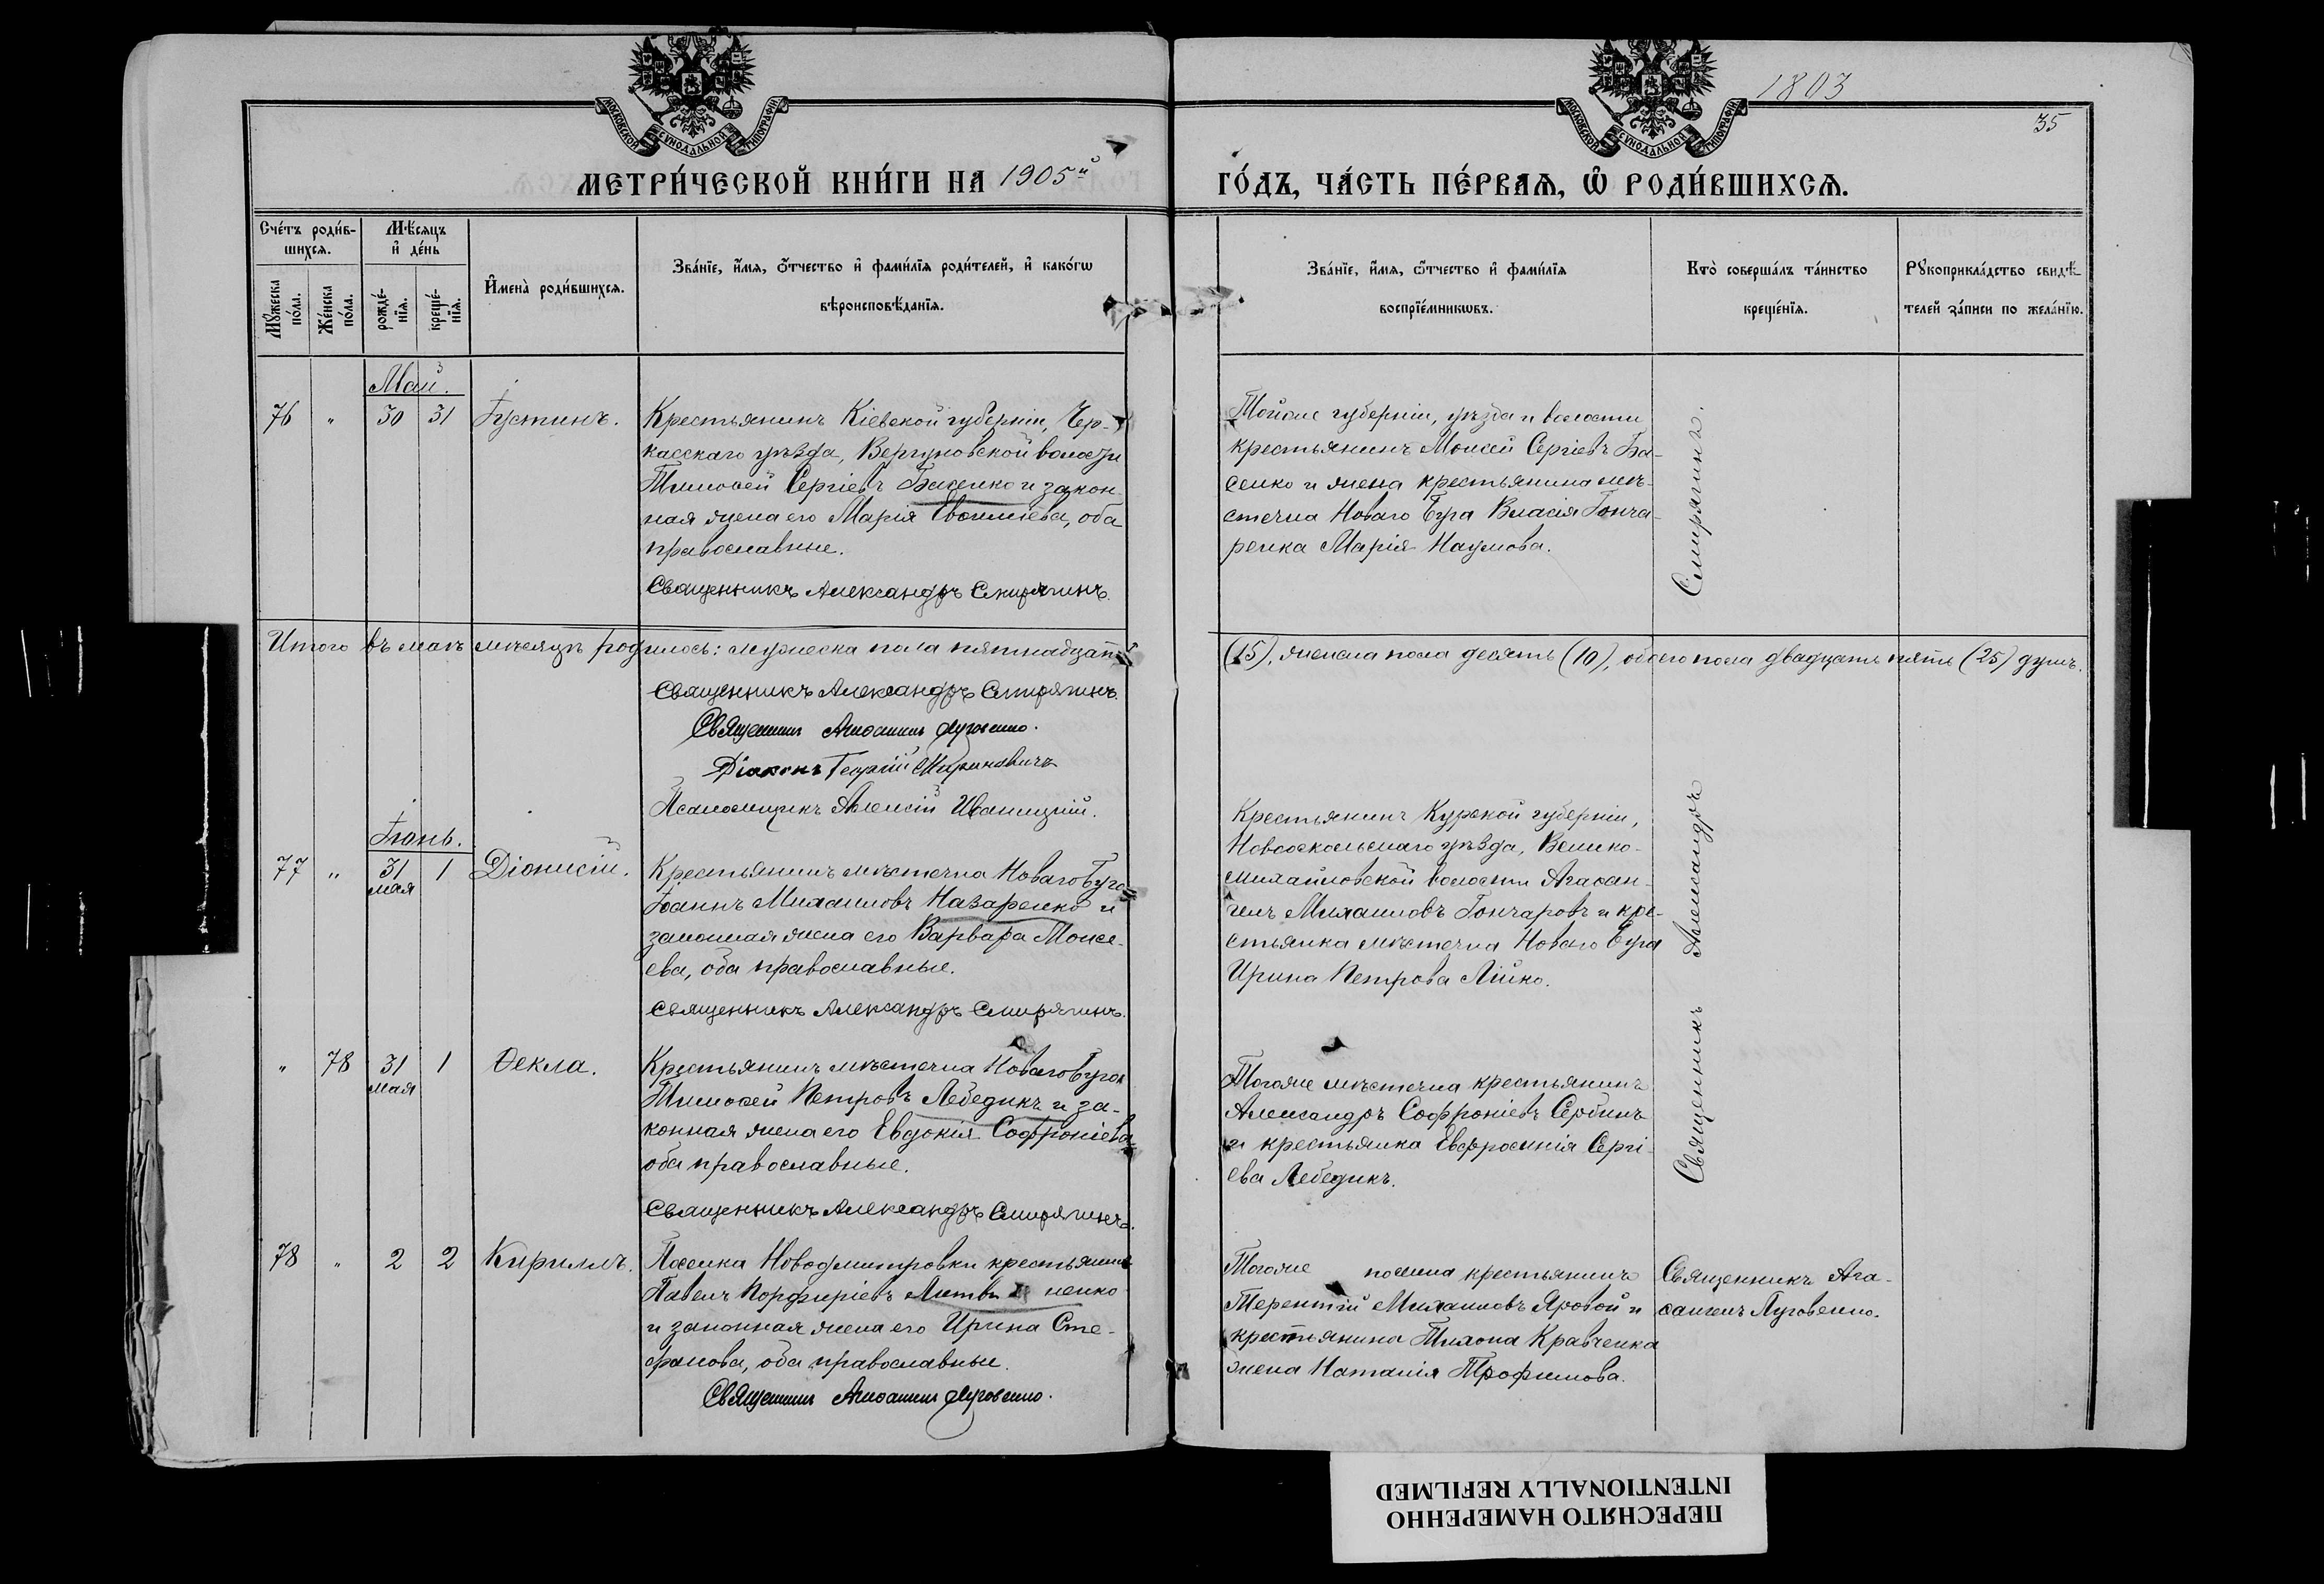 1803
35
МОСКОВСКОЙ СѴНОДАЛЬНОЙ ТИПОГРАФІИ
МОСКОВСКОЙ СѴНОДАЛЬНОЙ ТИПОГРАФІИ
МЕТРИ́ЧЕСКОЙ КНИ́ГИ НА 1905й
ГО́ДЪ, ЧА́СТЬ ПЕ́РВАѦ, Ѡ҆ РОДИ́ВШИХСѦ.
Сче́тъ роди́в-
шихсѧ.
Мꙋ́жеска по́ла.
Же́нска по́ла.
Мѣ́сѧцъ
и҆ де́нь
рожде́-
нїѧ.
креще́-
нїѧ.
И҆мена̀ роди́вшихсѧ.
Зва́нїе, и҆́мѧ, ѻ҆́тчество и҆ фами́лїѧ роди́телей, и҆ како́гѡ
вѣроисповѣ́данїѧ.
Зва́нїе, и҆́мѧ, ѻ҆́тчество и҆ фами́лїѧ
воспрїе́мникѡвъ.
Кто̀ соверша́лъ та́инство
креще́нїѧ.
Рꙋкоприкла́дство свидѣ́-
телей за́писи по жела́нїю.
Май.
76 " 30 31 Іустинъ.
Крестьянинъ Кіевской губерніи, Чер-
касскаго уѣзда, Вергуновской волости
Тимоѳей Сергіевъ Басенко и закон-
ная жена его Марія Евѳиміева, оба
православные.
Священникъ Александръ Смирягинъ.
Тойже губерніи, уѣзда и волости
крестьянинъ Моисей Сергіевъ Ба-
сенко и жена крестьянина мѣ-
стечка Новаго Буга Власія Гонча-
ренка Марія Наумова.
Итого въ маѣ мѣсяцѣ родилось: мужеска пола пятнадцать
(15), женска пола десять (10), обоего пола двадцать пять (25) душъ.
Священникъ Александръ Смирягинъ.
Священникъ Агаѳангелъ Луговенко.
Діаконъ Георгій Мириновичъ
Псаломщикъ Алексій Иваницкій.
Іюнь.
77 " 31 мая 1 Діонисій.
Крестьянинъ мѣстечка Новаго Буга
Іоаннъ Михаиловъ Назаренко и
законная жена его Варвара Моисе-
ева, оба православные.
Священникъ Александръ Смирягинъ.
Крестьянинъ Курской губерніи,
Новооскольскаго уѣзда, Велико-
михайловской волости Агаѳан-
гелъ Михаиловъ Гончаровъ и кре-
стьянка мѣстечка Новаго Буга
Ирина Петрова Лійко.
" 78 31 мая 1 Ѳекла.
Крестьянинъ мѣстечка Новаго Буга
Тимоѳей Петровъ Лебедикъ и за-
конная жена его Евдокія Софроніева
оба православные.
Священникъ Александръ Смирягинъ.
Тогоже мѣстечка крестьянинъ
Александръ Софроніевъ Сербинъ
и крестьянка Евфросинія Сергі-
ева Лебедикъ.
Священникъ Александръ Смирягинъ.
78 " 2 2 Кириллъ.
Поселка Новодмитровки крестьянинъ
Павелъ Порфиріевъ Литвиненко
и законная жена его Ирина Сте-
фанова, оба православные.
Священникъ Агаѳангелъ Луговенко.
Тогоже поселка крестьянинъ
Терентій Михаиловъ Яровой и
крестьянина Тихона Кравченка
жена Наталія Трофимова.
Священникъ Ага-
ѳангелъ Луговенко.
ПЕРЕСНЯТО НАМЕРЕННО
INTENTIONALLY REFILMED